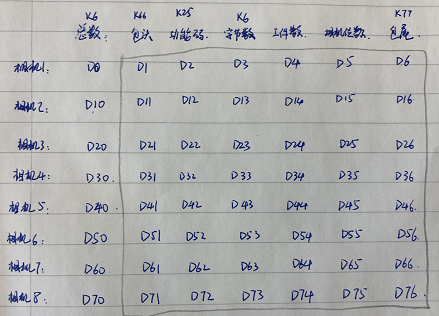 K6 K66 K25 K6 K77
总数: 包头 功能码: 字节数 工件数. 相机位数. 包尾.
相机1: D0 D1 D2 D3 D4 D5 D6
相机2: D10 D11 D12 D13 D14 D15 D16.
相机3: D20 D21 D22 D23 D24 D25 D26
相机4: D30. D31 D32 D33 D34 D35 D36
相机5: D40. D41 D42 D43 D44 D45 D46.
相机6: D50 D51 D52 D53 D54 D55 D56.
相机7: D60 D61 D62 D63 D64 D65 D66.
相机8: D70 D71 D72 D73 D74 D75 D76.